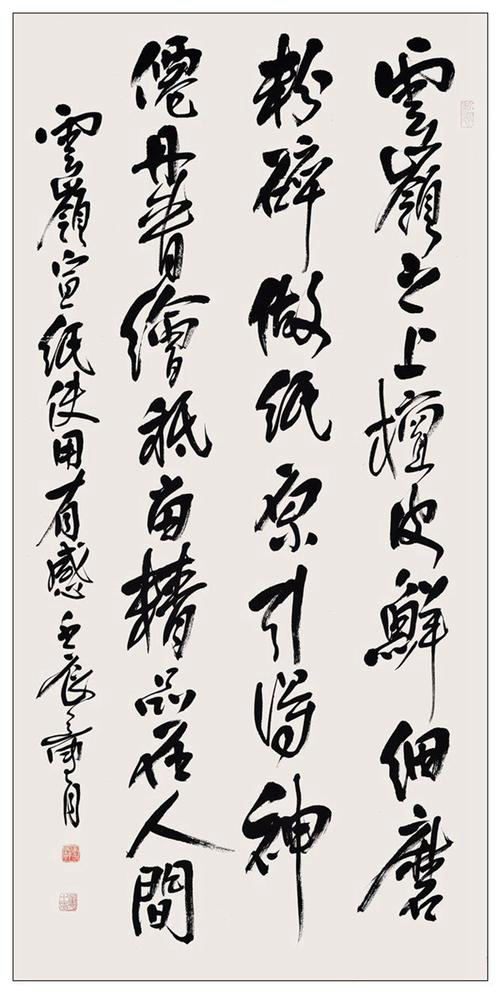 雲嶺之上檀皮鮮細磨
粉碎做紙原引得神
僊丹青繪祇留精品在人間
雲嶺宣紙使用有感壬辰月